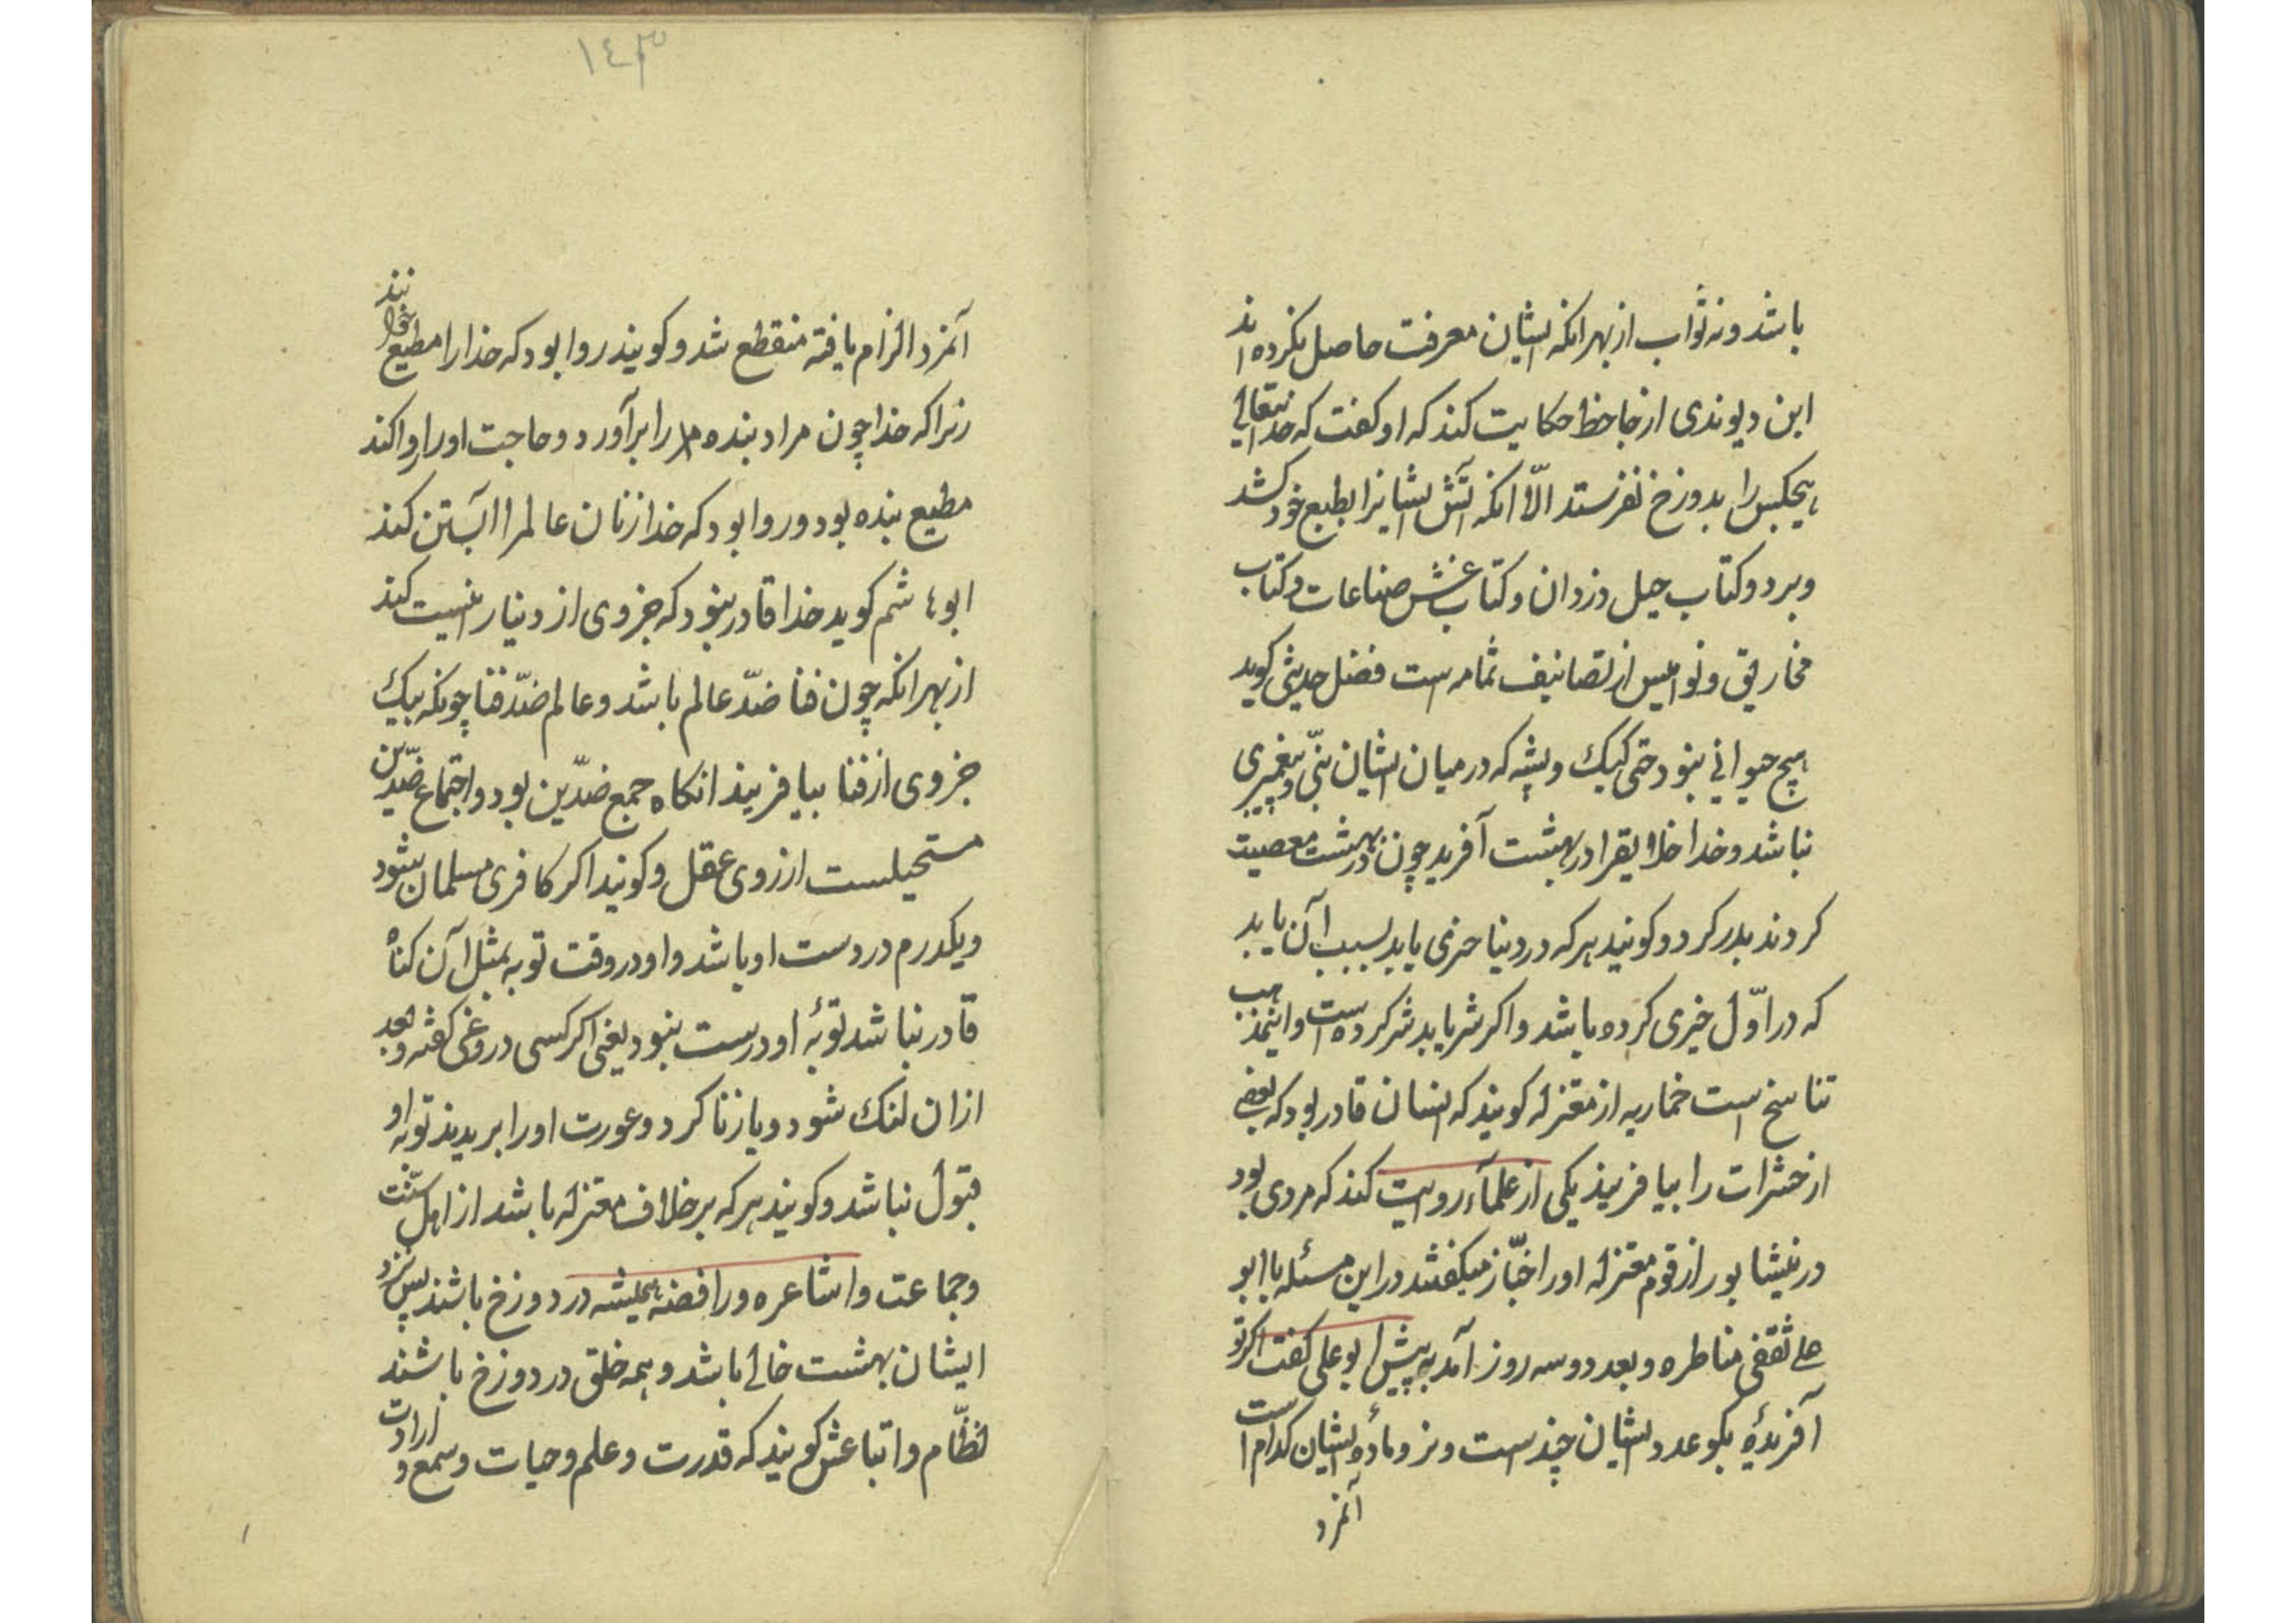 باشد و نه ثواب از بهر انکه ایشان معرفت حاصل نکرده اند
ابن دیوندی از جاحظ حکایت کند که او کفت که خدایتعالی
هیچکس را بدوزخ نفرستد الّا انکه آتش ایشانرا بطبع خود کشد
و برد و کتاب حیل دزدان و کتاب غش صناعات و کتاب
مخاریق و نوامیس از تصانیف ثمامه است فضل حدیثی کوید
هیچ حیوانی نبود حتی کیک و پشه که در میان ایشان نبّی و پیغمبری
نباشد و خدا خلایقرا در بهشت آفرید چون در بهشت معصیت
کردند بدر کرد و کویند هر که در دنیا خیری یابد بسبب آن یابد
که در اوّل خیری کرده باشد و اکر شر یابد شر کرده است و اینمذهب
تناسخ است خماریه از معتزله کویند که انسان قادر بود که بعضی
از حشرات را بیافریند یکی از علمآء روایت کند که مردی بود
در نیشابور از قوم معتزله او را خبّاز میکفتند در این مسئله با ابو
علی ثقفی مناطره و بعد دو سه روز آمد به پیش ابو علی کفت اکر تو
آفریدهٔ بکو عدد ایشان چند است و نر و مادهٔ ایشان کدام است
آنمرد
١٤٣
آنمرد الزام یافته منقطع شد و کویند روا بود که خدا را مطیع خوانند
زیرا که خدا چون مراد بنده را برآورد و حاجت او را روا کند
مطیع بنده بود و روا بود که خدا زنان عالمرا آبستن کند
ابوهاشم کوید خدا قادر نبود که جزوی از دنیا را نیست کند
از بهر انکه چون فنا ضدّ عالم باشد و عالم ضدّ فنا چونکه بیک
جزوی از فنا بیافریند انکاه جمع ضدّین بود و اجتماع ضدّین
مستحیلست از روی عقل و کویند اکر کافری مسلمان شود
و یکدرم در دست او باشد و او در وقت توبه بمثل آن کناه
قادر نباشد توبهٔ او درست نبود یعنی اکر کسی دروغی کفته و بعد
ازان لنک شود و یا زنا کرد و عورت او را ببریدند توبه او
قبول نباشد و کویند هر که بر خلاف معتزله باشد از اهل سنّت
و جماعت و اشاعره و رافضه همیشه در دوزخ باشند پس نزد
ایشان بهشت خالی باشد و همه خلق در دوزخ باشند
نظّام و اتباعش کویند که قدرت و علم و حیات و سمع و ارادت